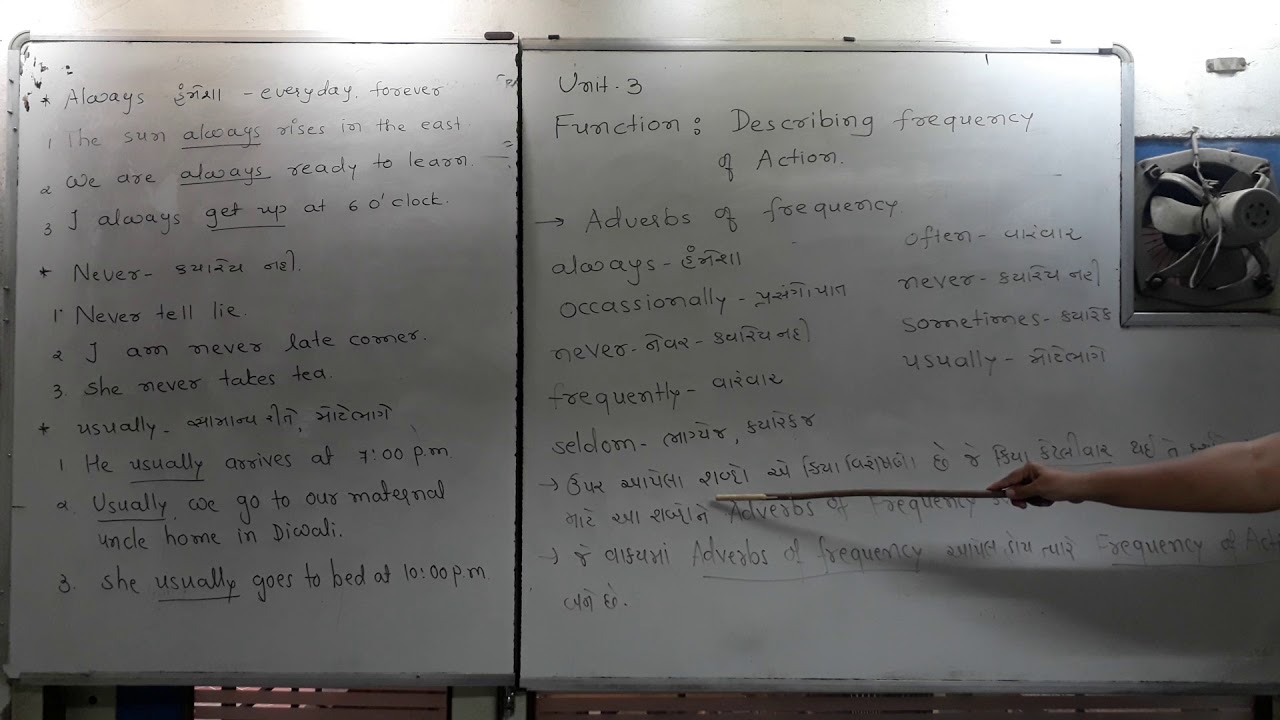 * Always હંમેશા - everyday, forever
1 The sun always rises in the east.
2 We are always ready to learn.
3 I always get up at 6 o'clock.
* Never - ક્યારેય નહી.
1. Never tell lie.
2 I am never late comer.
3. She never takes tea.
* usually - સામાન્ય રીતે, મોટેભાગે
1 He usually arrives at 7:00 p.m
2. Usually we go to our maternal
uncle home in Diwali.
3. She usually goes to bed at 10:00 p.m.
Unit. 3
Function: Describing frequency
of Action.
→ Adverbs of frequency.
always - હંમેશા
occassionally - પ્રસંગોપાત
never - નેવર - ક્યારેય નહી
frequently - વારંવાર
seldom - ભાગ્યેજ, ક્યારેકજ
often - વારંવાર
never - ક્યારેય નહી
sometimes - ક્યારેક
usually - મોટેભાગે
→ ઉપર આપેલા શબ્દો એ ક્રિયા વિશેષણો છે જે ક્રિયા કેટલીવાર થઈ તે
માટે આ શબ્દોને Adverbs of Frequency
→ જે વાક્યમાં Adverbs of frequency આપેલ હોય ત્યારે Frequency of
બને છે.